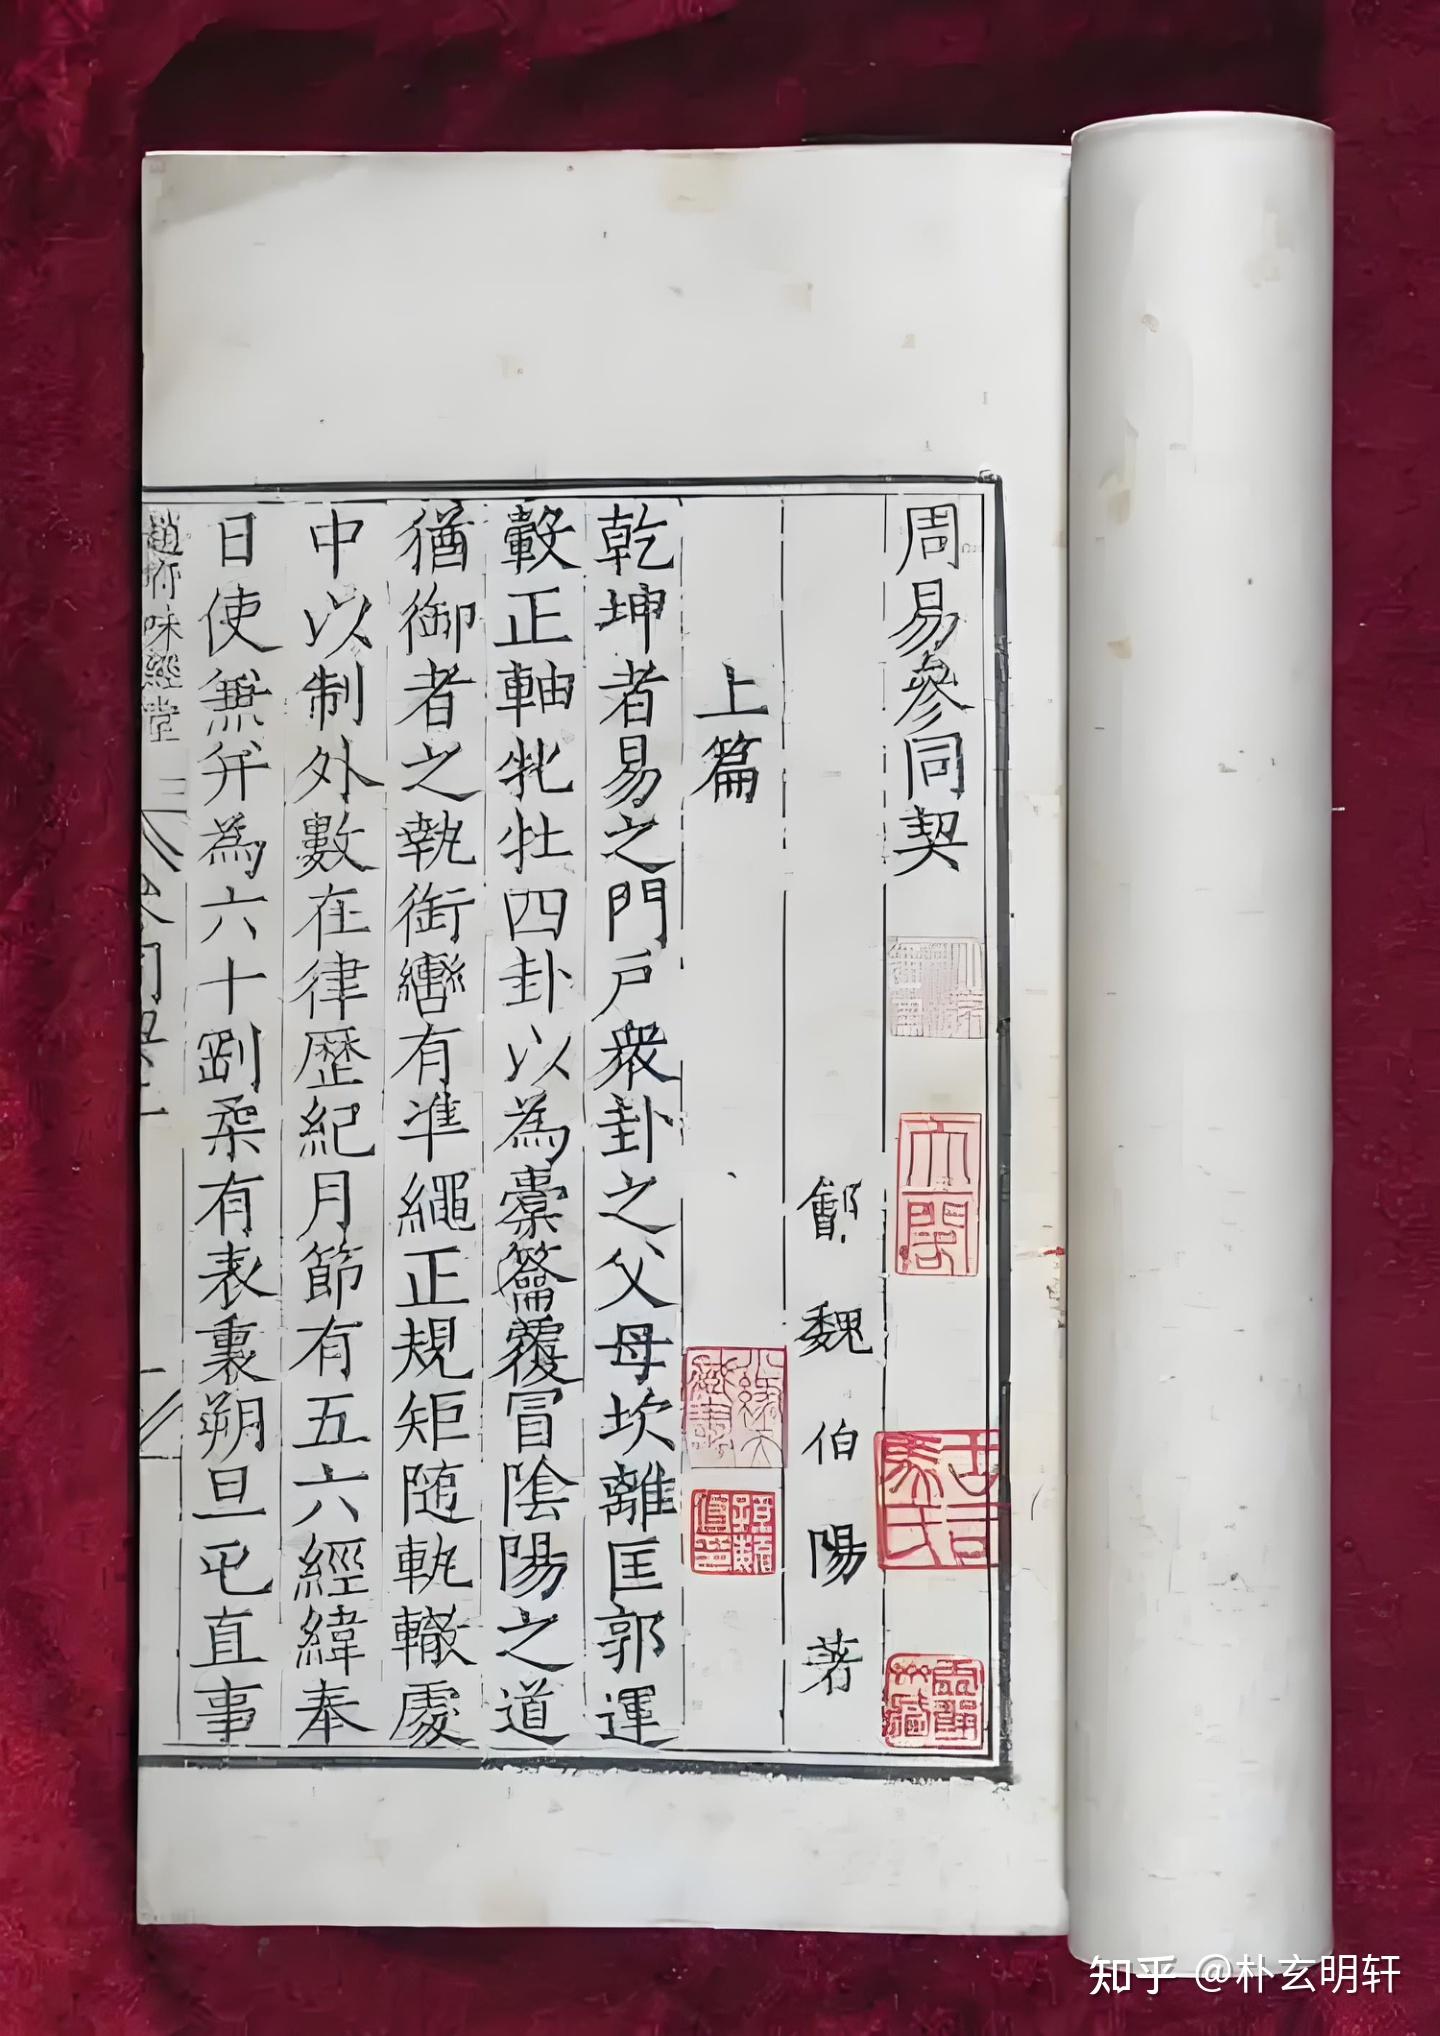 周易參同契
魏伯陽著
上篇
乾坤者易之門戶衆卦之父母坎離匡郭運
轂正軸牝牡四卦以為橐籥覆冒陰陽之道
猶御者之執銜轡有準繩正規矩随軌轍處
中以制外數在律歷紀月節有五六經緯奉
日使兼并為六十剛柔有表裏朔旦屯直事
趙府味經堂
知乎 @朴玄明轩